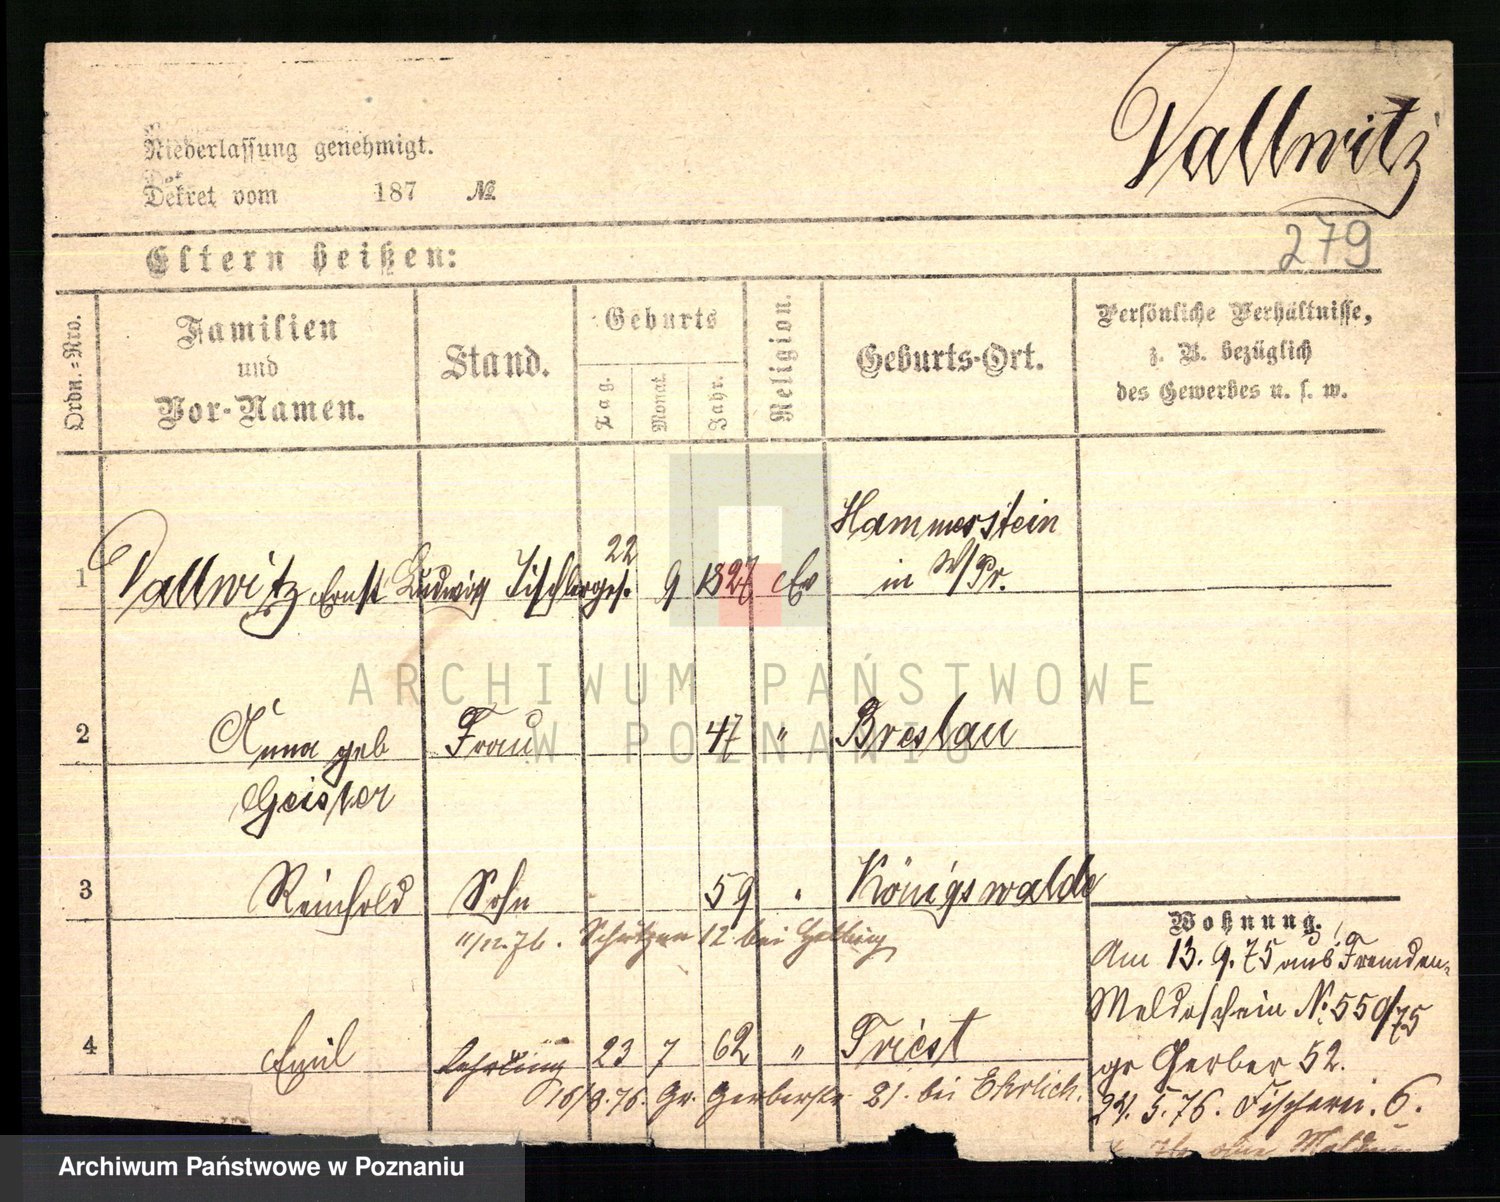 Vallwitz
Niederlassung genehmigt.
Dekret vom 187 №
279
Eltern heißen:
Ordn.=Nro.
Familien
und
Vor-Namen.
Stand.
Geburts
Tag.
Monat.
Jahr.
Religion.
Geburts-Ort.
Persönliche Verhältnisse,
z. B. bezüglich
des Gewerbes u. s. w.
1 Vallwitz Ernst Ludwig Tischlerges. 22 9 1827 Ev Hammerstein
in W/Pr.
2 Anna geb Frau 47 " Breslau
Geister
3 Reinhold Sohn 59 " Königswalde
11/12.76. Schützen 12 bei
4 Emil Lehrling 23 7 62 " Triest
16/8.76. Gr. Gerberstr. 21. bei Ehrlich.
Wohnung.
Am 13.9.75 aus Fremden-
Meldeschein No. 550/75
gr Gerber 52.
24.5.76. Fischerei. 6.
ARCHIWUM PAŃSTWOWE
W POZNANIU
Archiwum Państwowe w Poznaniu